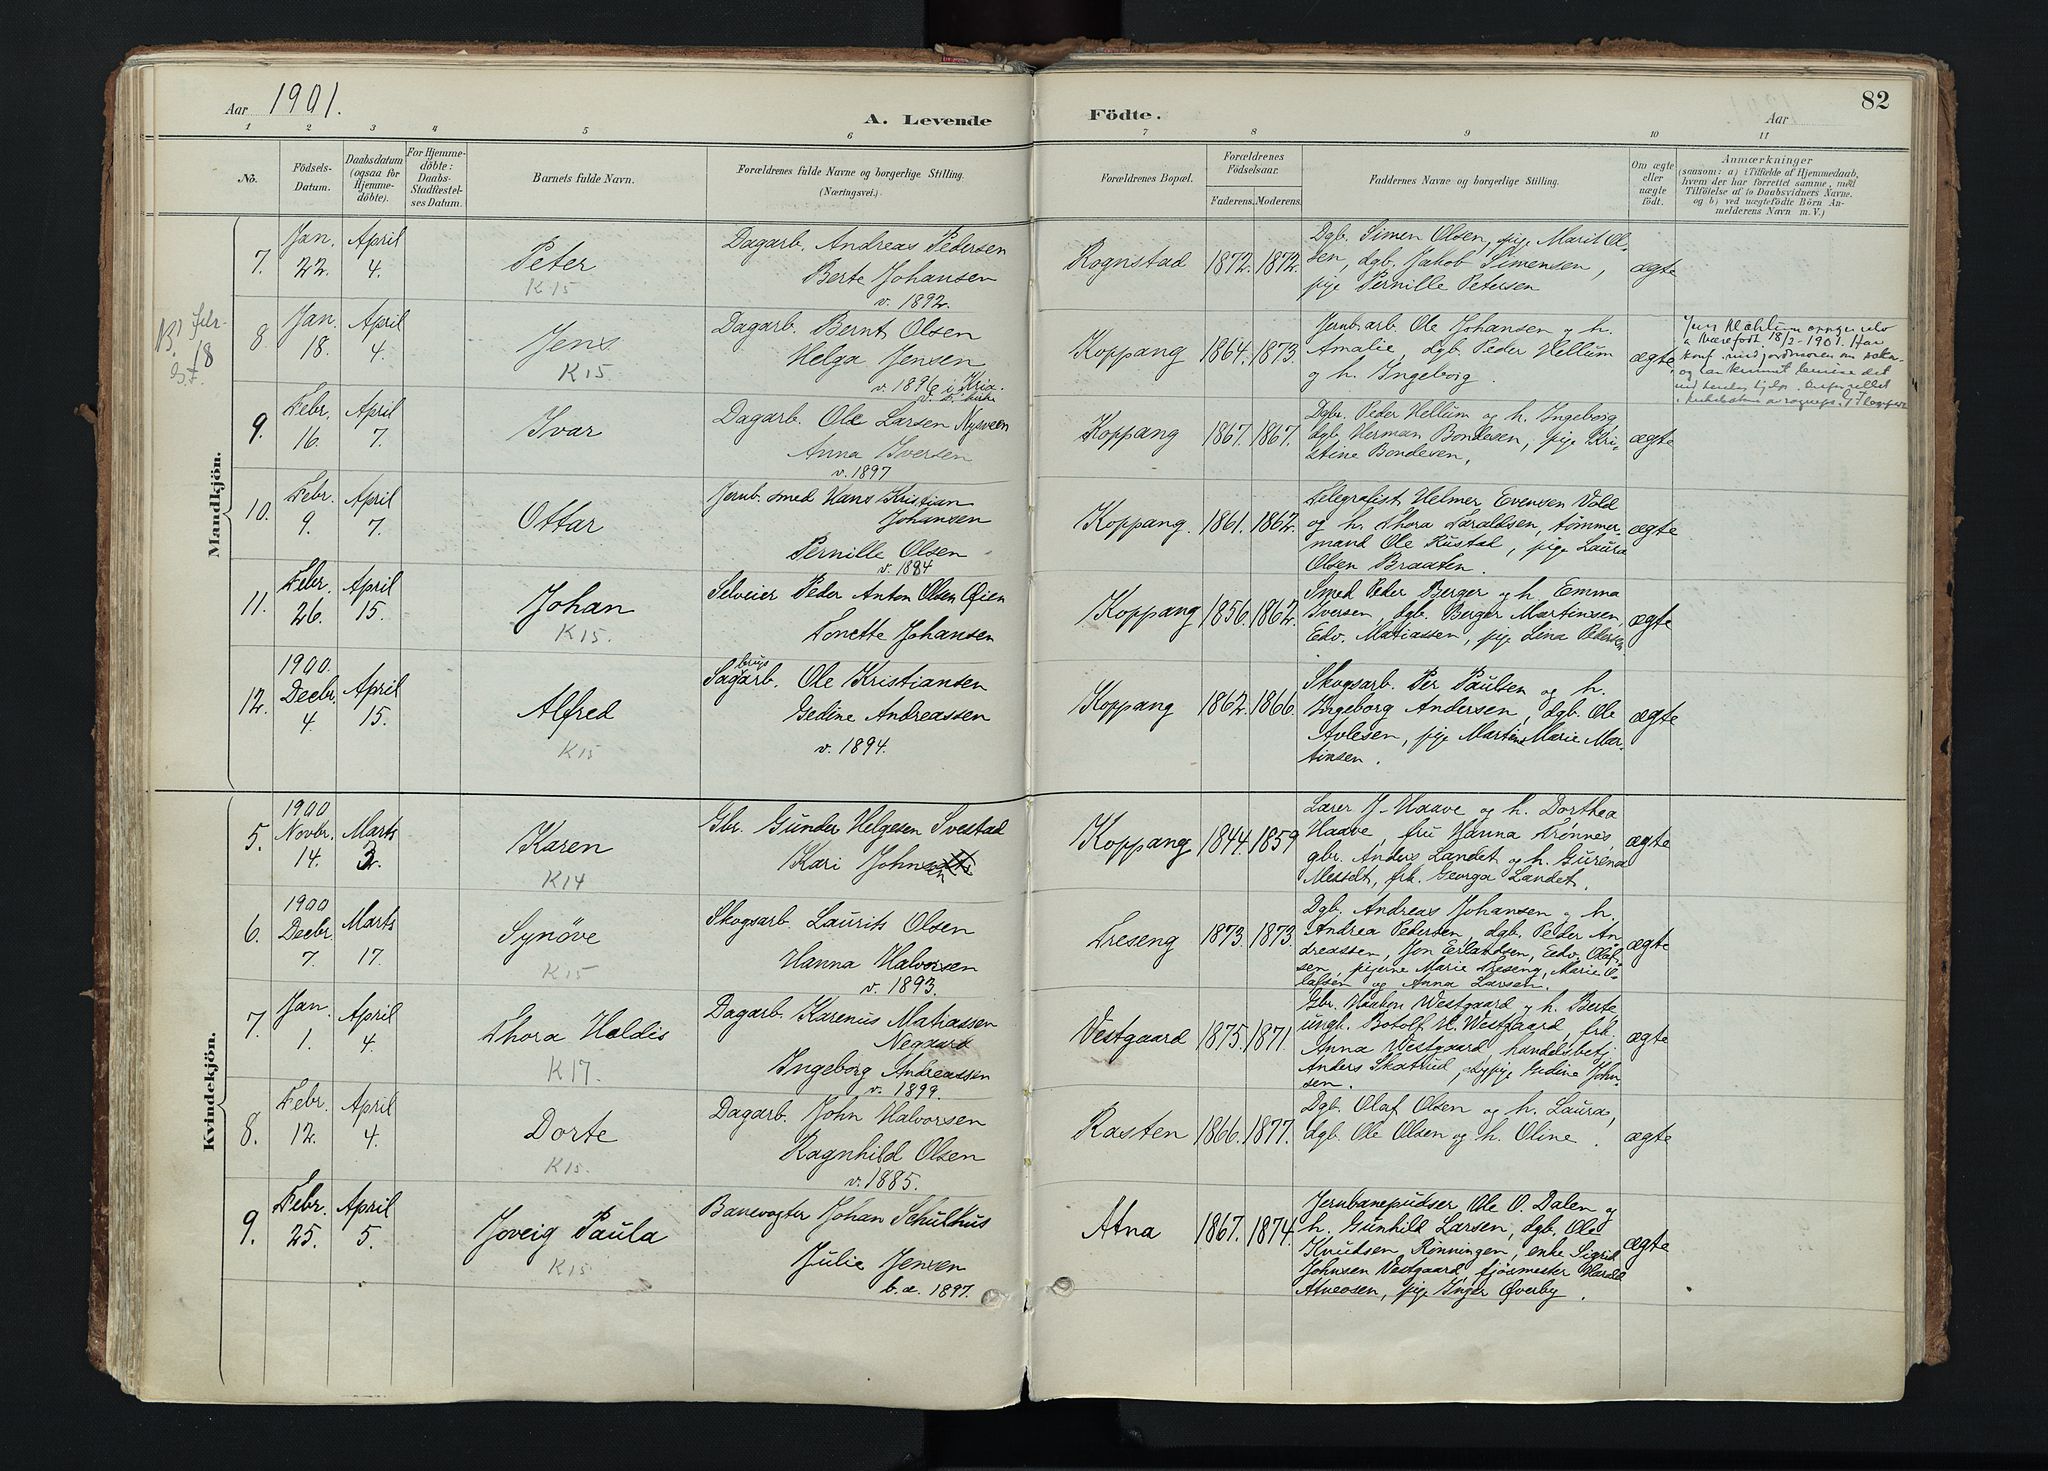 Aar 1901.
A. Levende
Födte.
Aar
82
1 2 3 4 5 6 7 8 9 10 11
No.
Födsels-
Datum.
Daabsdatum
(ogsaa for
Hjemme-
döbte).
For Hjemme-
döbte:
Daabs-
Stadfæstel-
ses Datum.
Barnets fulde Navn.
Forældrenes fulde Navne og borgerlige Stilling.
(Næringsvei.)
Forældrenes Bopæl.
Forældrenes
Födselsaar.
Faderens. Moderens.
Faddernes Navne og borgerlige Stilling.
Om ægte
eller
uægte
født.
Anmærkninger
saasom: a) i Tilfælde af Hjemmedaab,
hvem der har forrettet samme, med
Tilføielse af to Daabsvidners Navne.
og b) ved uægtefödte Börn An-
melderens Navn m. V.)
Mandkjön.
7.
Jan.
22.
April
4.
Peter
K 15
Dagarb. Andreas Pedersen
Berte Johansen
v. 1892.
Rognstad
1872. 1872.
Dgb. Simen Olsen, pige Marit Ol-
sen, dgb. Jakob Simensen,
pige Pernille Petersen
ægte
febr.
18
8.
Jan.
18.
April
4.
Jens
K 15.
Dagarb. Bernt Olsen
Helga Jensen
v. 1896 i Kria.
Koppang
1864. 1873.
Jernb.arb. Ole Johansen og h.
Amalie, dgb. Peder Hellum
og h. Ingeborg.
ægte
9.
Febr.
16.
April
7.
Ivar
Dagarb. Ole Larsen Nysveen
Anna Iversen
v. 1897
Koppang
1867. 1867.
Dgbr. Peder Hellum og h. Ingeborg,
dgb. Herman Bondesen, pige Kri-
stine Bondesen.
ægte
10.
Febr.
9.
April
7.
Ottar
Jernb. smed Hans Kristian
Johansen
Pernille Olsen
v. 1884
Koppang
1861. 1862.
Telegrafist Helmer Evensen Vold
og h. Thora Haraldsen, tømmer-
mand Ole Rustad, pige Laura
Olsen Braaten.
ægte
11.
Febr.
26.
April
15.
Johan
K 15.
Selveier Peder Anton Olsen Øien
Tonette Johansen
Koppang
1856. 1862.
Smed Peder Berger og h. Emma
Iversen, dgb. Berger Martinsen,
Edv. Matiassen, pige Lina Pedersen
ægte
12.
1900.
Decbr.
4.
April
15.
Alfred
K 15
Sagbrugsarb. Ole Kristiansen
Gedine Andreassen
v. 1894.
Koppang
1862. 1866.
Skogsarb. Per Paulsen og h.
Ingeborg Andersen, dgb. Ole
Avlesen, pige Martine Marie Mar-
tinsen.
ægte
Kvindekjön.
5.
1900
Novbr.
14.
Marts
3.
Karen
K 14
Gbr. Gunder Helgesen Svestad
Kari Johnsen
Koppang
1844. 1859
Lærer J. Haave og h. Dorthea
Haave, fru Hanna Trønnes,
gbr. Anders Landet og h. Gurena
Messelt, frk. Georga Landet.
ægte
6.
1900
Decbr.
7.
Marts
17.
Synøve
K 15
Skogsarb. Laurits Olsen
Hanna Halvorsen
v. 1893.
Treseng
1873. 1873.
Dgb. Andreas Johansen og h.
Andrea Pedersen, dgb. Peder An-
dreassen, Jon Erlandsen, Edv. Olaf-
sen, pigerne Marie Treseng, Marie O-
lafsen og Anna Larsen.
ægte
7.
Jan.
1.
April
4.
Thora Haldis
K 17.
Dagarb. Karenus Matiassen
Negaard
Ingeborg Andreassen
v. 1899.
Vestgaard
1875. 1871.
Gbr. Haaken Westgaard og h. Berte
ungk. Botolf H. Westgaard, frk.
Anna Westgaard, handelsbetj.
Anders Skatrud, pige Gedine John-
sen.
ægte
8.
Febr.
12.
April
4.
Dorte
K 15.
Dagarb. John Halvorsen
Ragnhild Olsen
v. 1885.
Rasten
1866. 1877.
Dgb. Olaf Olsen og h. Laura,
dgb. Ole Olsen og h. Oline.
ægte
9.
Febr.
25.
April
5.
Joveig Paula
K 15
Banevogter Johan Schulhus
Julie Jensen
b. v. 1897.
Atna
1867. 1874.
Jernbanepudser Ole O. Dalen og
h. Gunhild Larsen, dgb. Ole
Knudsen Rønningen, enke Sigrid
Johnsen Vestgaard, fjøsmester
pige Inger Øverby.
ægte